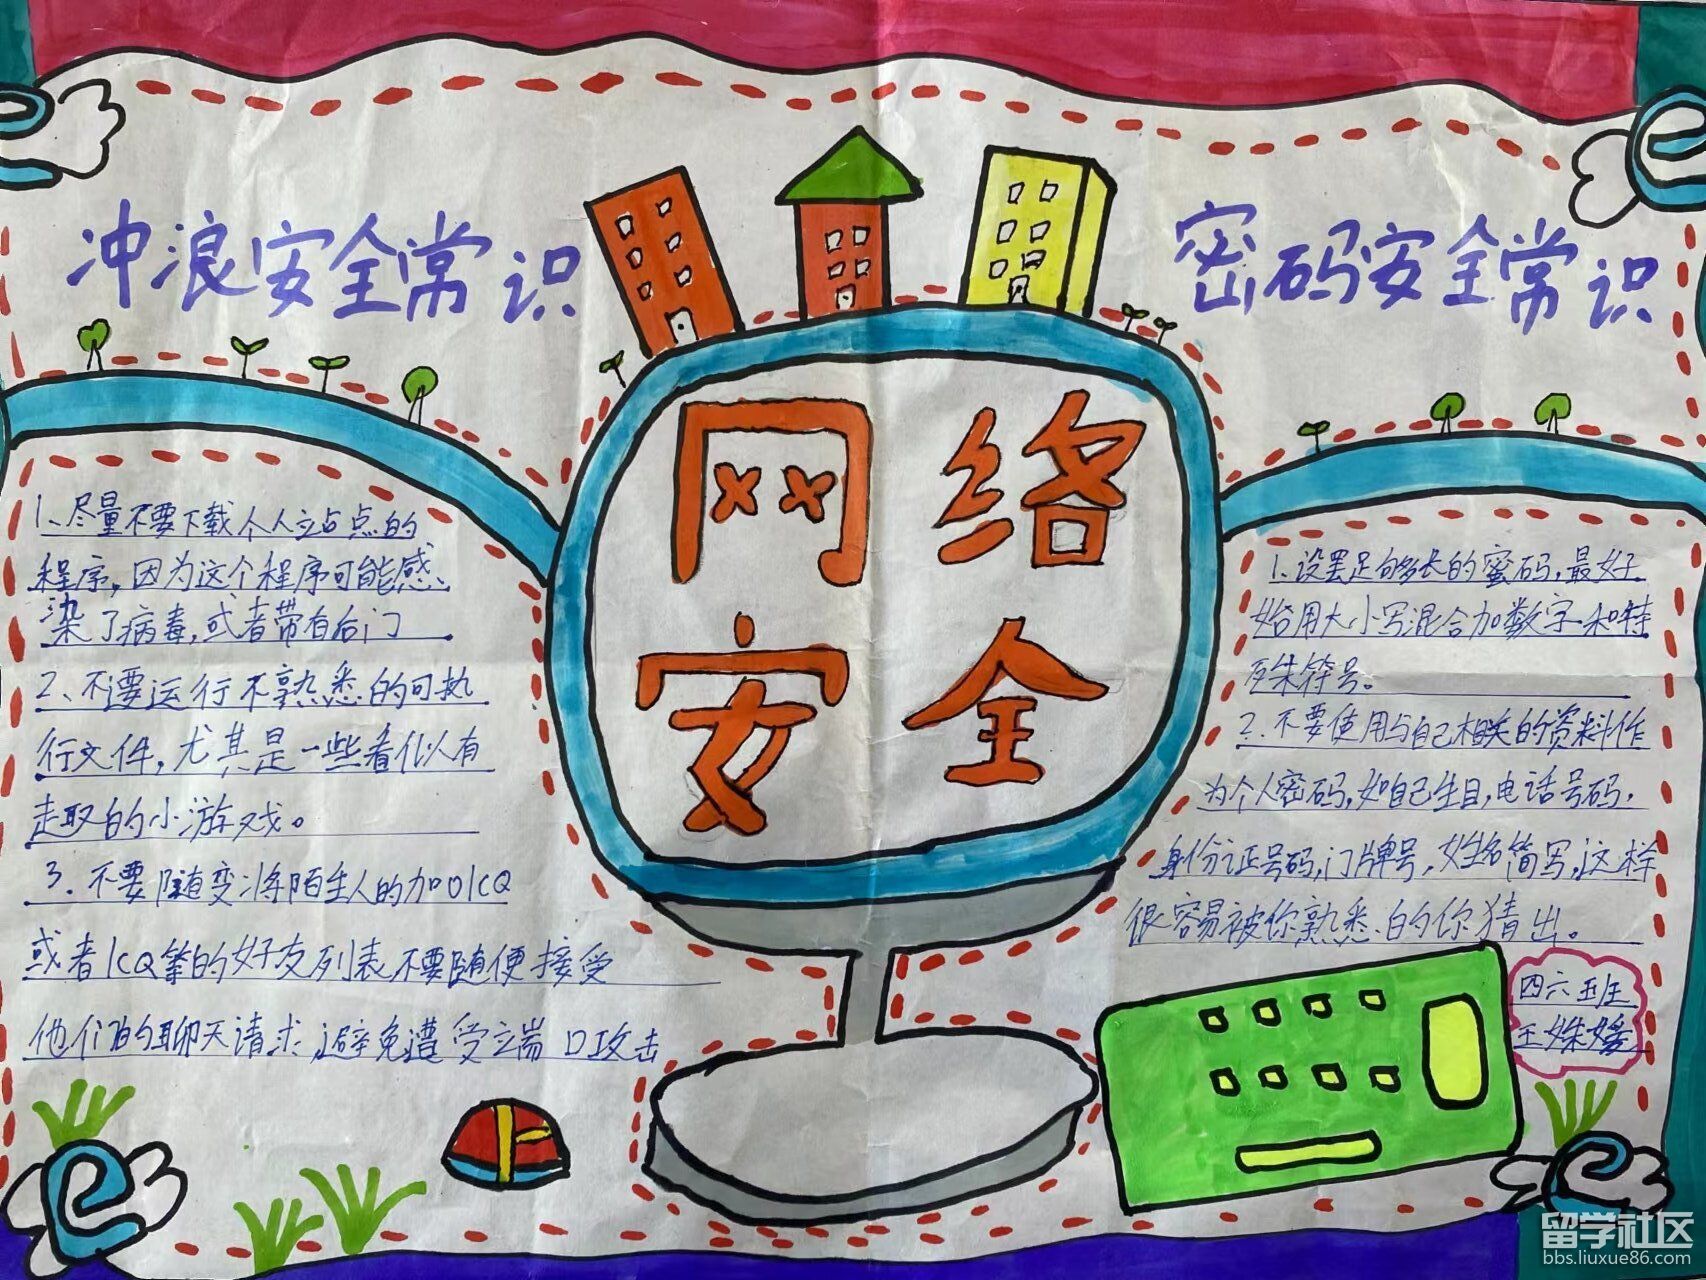 冲浪安全常识
密码安全常识
网络
安全
1、尽量不要下载个人站点的
程序，因为这个程序可能感
染了病毒，或者带有后门
2、不要运行不熟悉的可执
行文件，尤其是一些看似有
趣的小游戏。
3、不要随变将陌生人的加OICQ
或者ICQ等的好友列表不要随便接受
他们的聊天请求，避免遭受端口攻击
1、设置足够长的密码，最好
始用大小写混合加数字和特
殊符号。
2、不要使用与自己相关的资料作
为个人密码，如自己生日，电话号码，
身份证号码，门牌号，姓名简写，这样
很容易被你熟悉的你猜出。
四六班
王姝媛
留学社区
bbs.liuxue86.com